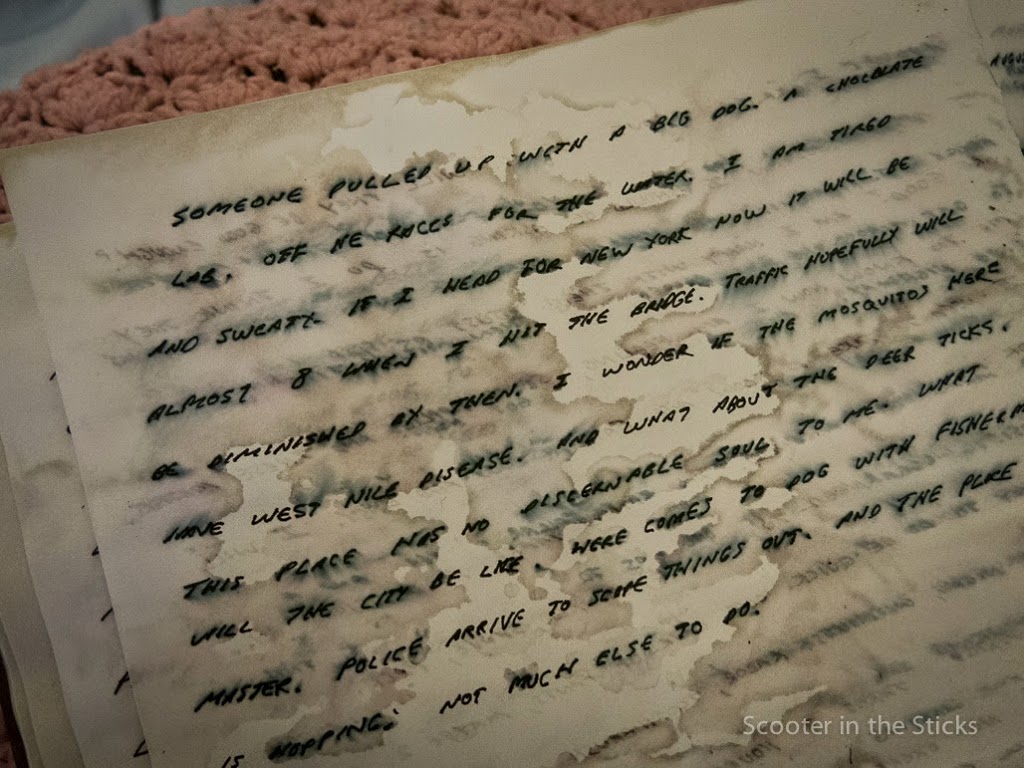 SOMEONE PULLED UP WITH A BIG DOG. A CHOCLATE
LAB. OFF HE RACES FOR THE WATER. I AM TIRED
AND SWEATY. IF I HEAD FOR NEW YORK NOW IT WILL BE
ALMOST 8 WHEN I HIT THE BRIDGE. TRAFFIC HOPEFULLY WILL
BE DIMINISHED BY THEN. I WONDER IF THE MOSQUITOS HERE
HAVE WEST NILE DISEASE. AND WHAT ABOUT THE DEER TICKS.
THIS PLACE HAS NO DISCERNABLE SOUL TO ME. WHAT
WILL THE CITY BE LIKE. HERE COMES TO DOG WITH FISHERM
MASTER. POLICE ARRIVE TO SCOPE THINGS OUT. AND THE PLACE
IS HOPPING. NOT MUCH ELSE TO DO.
Scooter in the Sticks